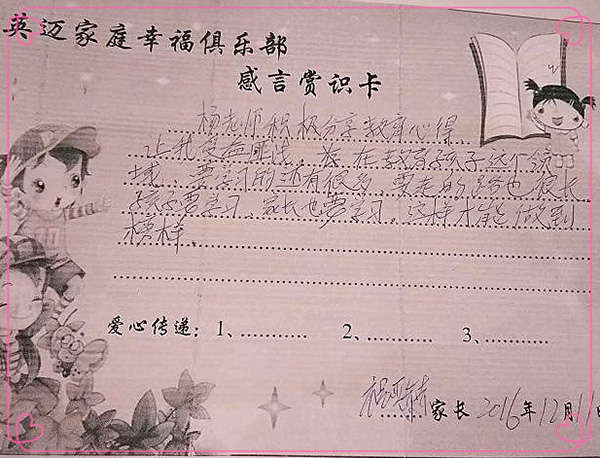 英迈家庭幸福俱乐部
感言赏识卡
杨老师积极分享教育心得
让我受益匪浅，尤在教育孩子这个领
域，要学习的还有很多，要走的路也很长
孩子要学习，家长也要学习，这样才能做到
榜样。
爱心传递：1、………… 2、………… 3、…………
家长 2016年12月11日